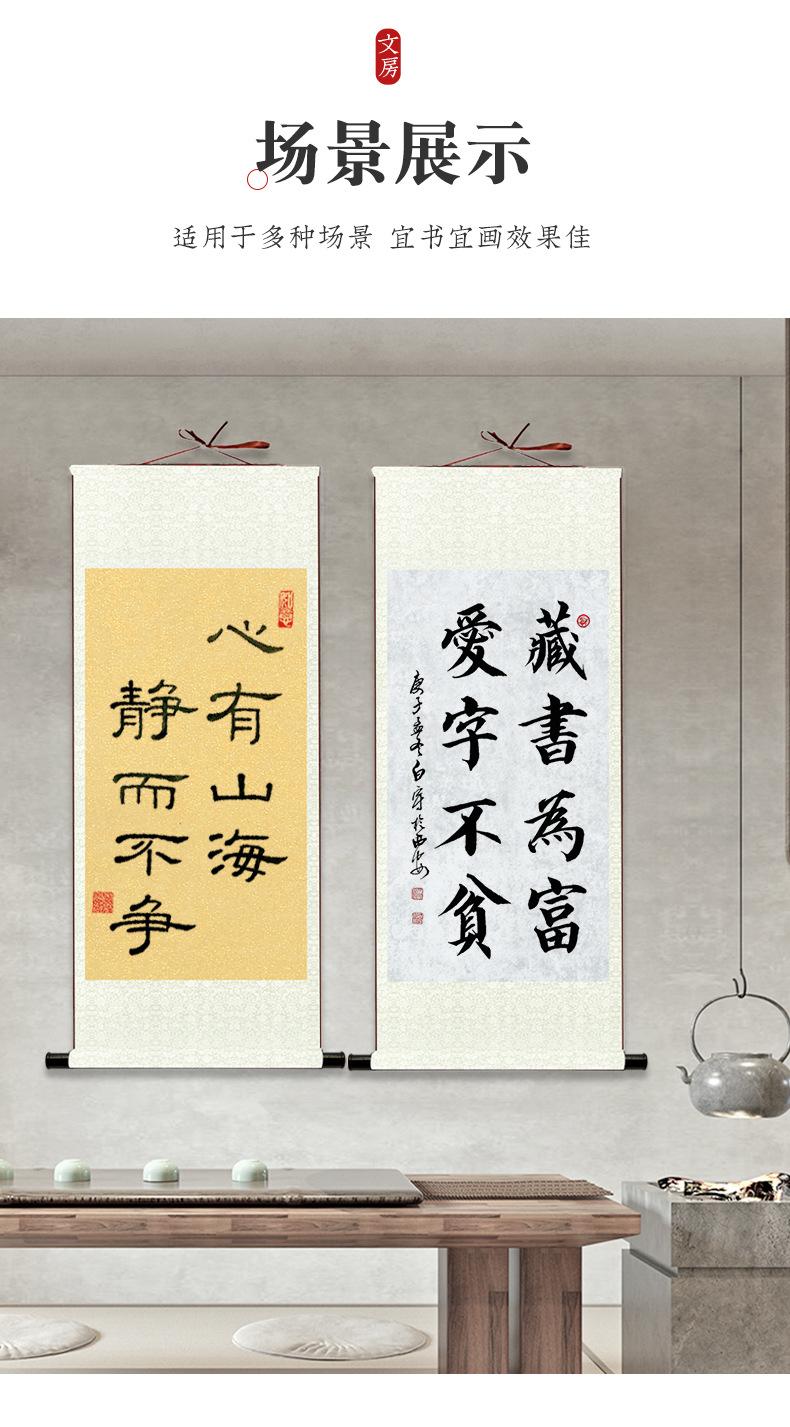 文房
场景展示
适用于多种场景 宜书宜画效果佳
心有山海
静而不争
藏書為富
愛字不貧
庚子孟冬白守於西安